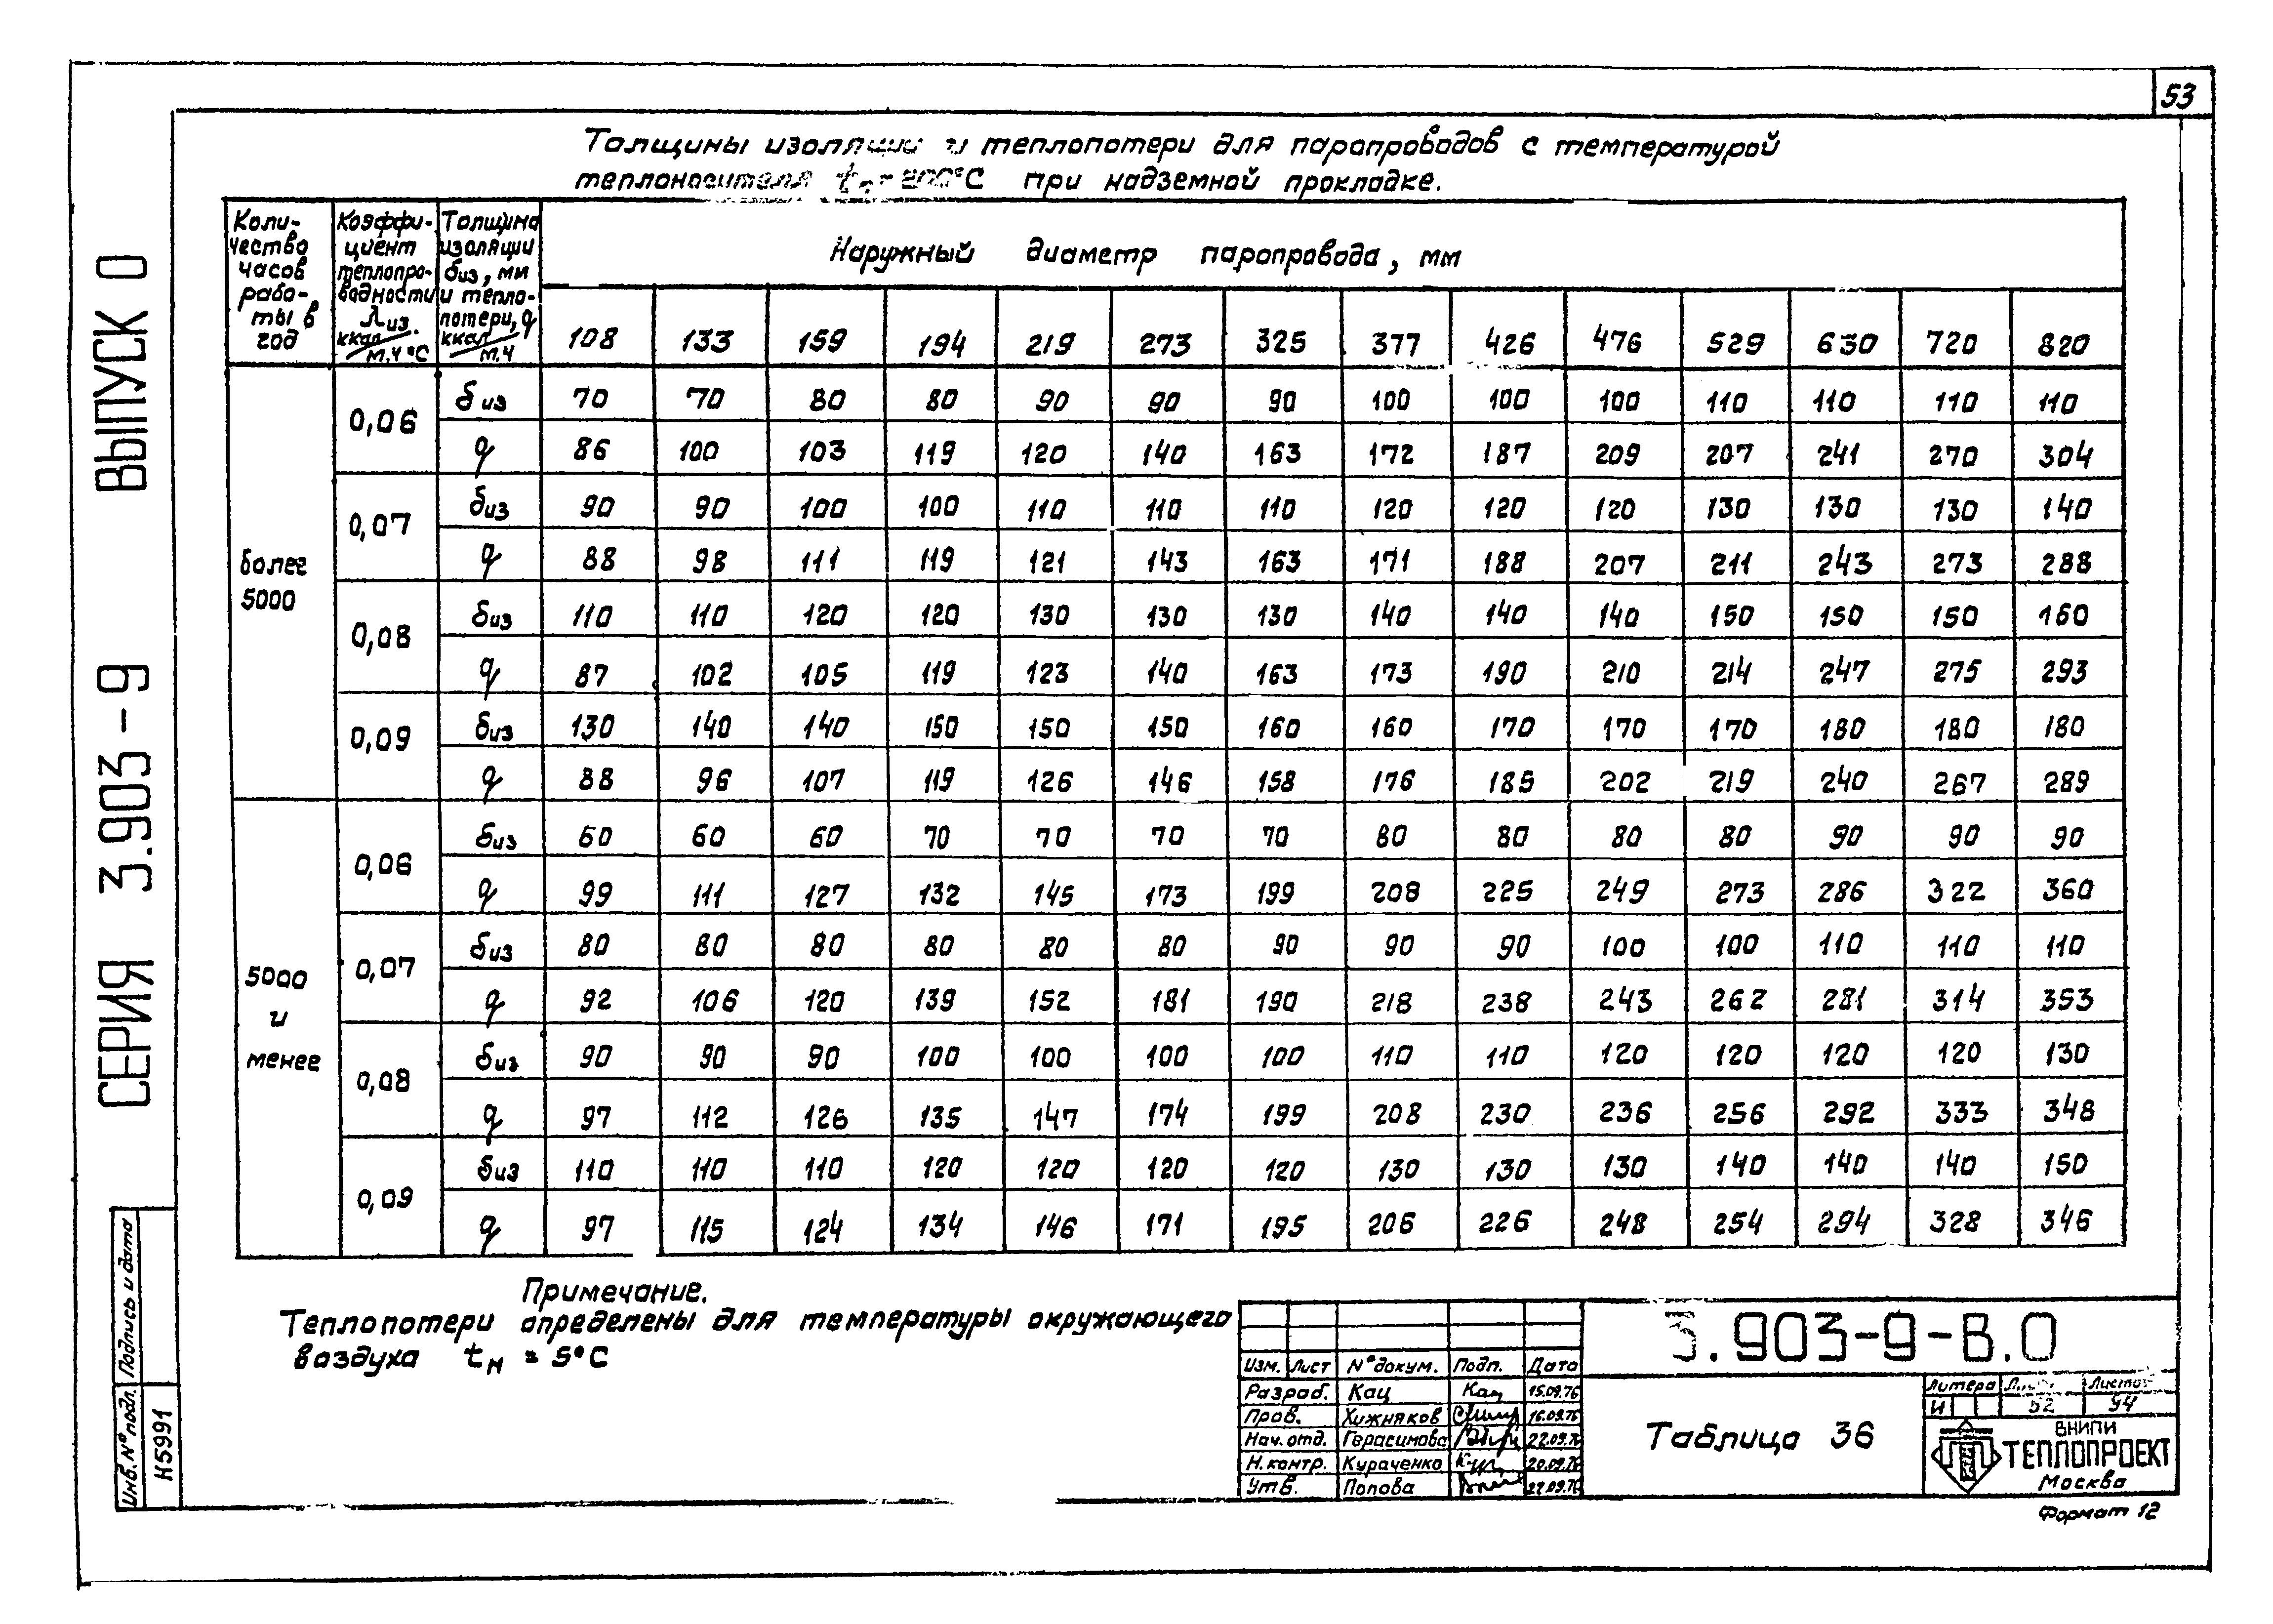 53
Толщины изоляции и теплопотери для паропроводов с температурой
теплоносителя tп = 200°С при надземной прокладке.
Коли-
чество
часов
рабо-
ты в
год
Коэффи-
циент
теплопро-
водности
λиз
ккал
м.ч °С
Толщина
изоляции
δиз, мм
и тепло-
потери, q
ккал
м.ч
Наружный диаметр паропровода, мм
108 133 159 194 219 273 325 377 426 476 529 630 720 820
более
5000
0,06
δиз 70 70 80 80 90 90 90 100 100 100 110 110 110 110
q 86 100 103 119 120 140 163 172 187 209 207 241 270 304
0,07
δиз 90 90 100 100 110 110 110 120 120 120 130 130 130 140
q 88 98 111 119 121 143 163 171 188 207 211 243 273 288
0,08
δиз 110 110 120 120 130 130 130 140 140 140 150 150 150 160
q 87 102 105 119 123 140 163 173 190 210 214 247 275 293
0,09
δиз 130 140 140 150 150 150 160 160 170 170 170 180 180 180
q 88 96 107 119 126 146 158 176 185 202 219 240 267 289
5000
и
менее
0,06
δиз 60 60 60 70 70 70 70 80 80 80 80 90 90 90
q 99 111 127 132 145 173 199 208 225 249 273 286 322 360
0,07
δиз 80 80 80 80 80 80 90 90 90 100 100 110 110 110
q 92 106 120 139 152 181 190 218 238 243 262 281 314 353
0,08
δиз 90 90 90 100 100 100 100 110 110 120 120 120 120 130
q 97 112 126 135 147 174 199 208 230 236 256 292 333 348
0,09
δиз 110 110 110 120 120 120 120 130 130 130 140 140 140 150
q 97 115 124 134 146 171 195 206 226 248 254 294 328 346
Примечание.
Теплопотери определены для температуры окружающего
воздуха tн = 5°С
СЕРИЯ 3.903-9 ВЫПУСК 0
Инв. № подл. Подпись и дата
Н5991
3.903-9-В.0
Изм. Лист № докум. Подп. Дата
Разраб. Кац Кац 15.09.76
Пров. Хижняков 16.09.76
Нач. отд. Герасимова 22.09.76
Н. контр. Кураченко 20.09.76
Утв. Попова 22.09.76
Таблица 36
Литера Лист Листов
И 52 94
ВНИПИ
ТЕПЛОПРОЕКТ
Москва
Формат 12